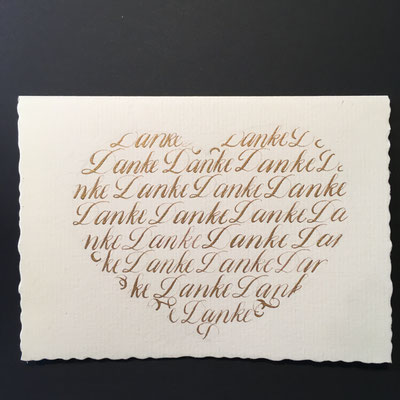 Danke Danke D
Danke Danke Danke D
nke Danke Danke Danke
Danke Danke Danke Da
nke Danke Danke Dan
ke Danke Danke Dar
ke Danke Dank
Danke